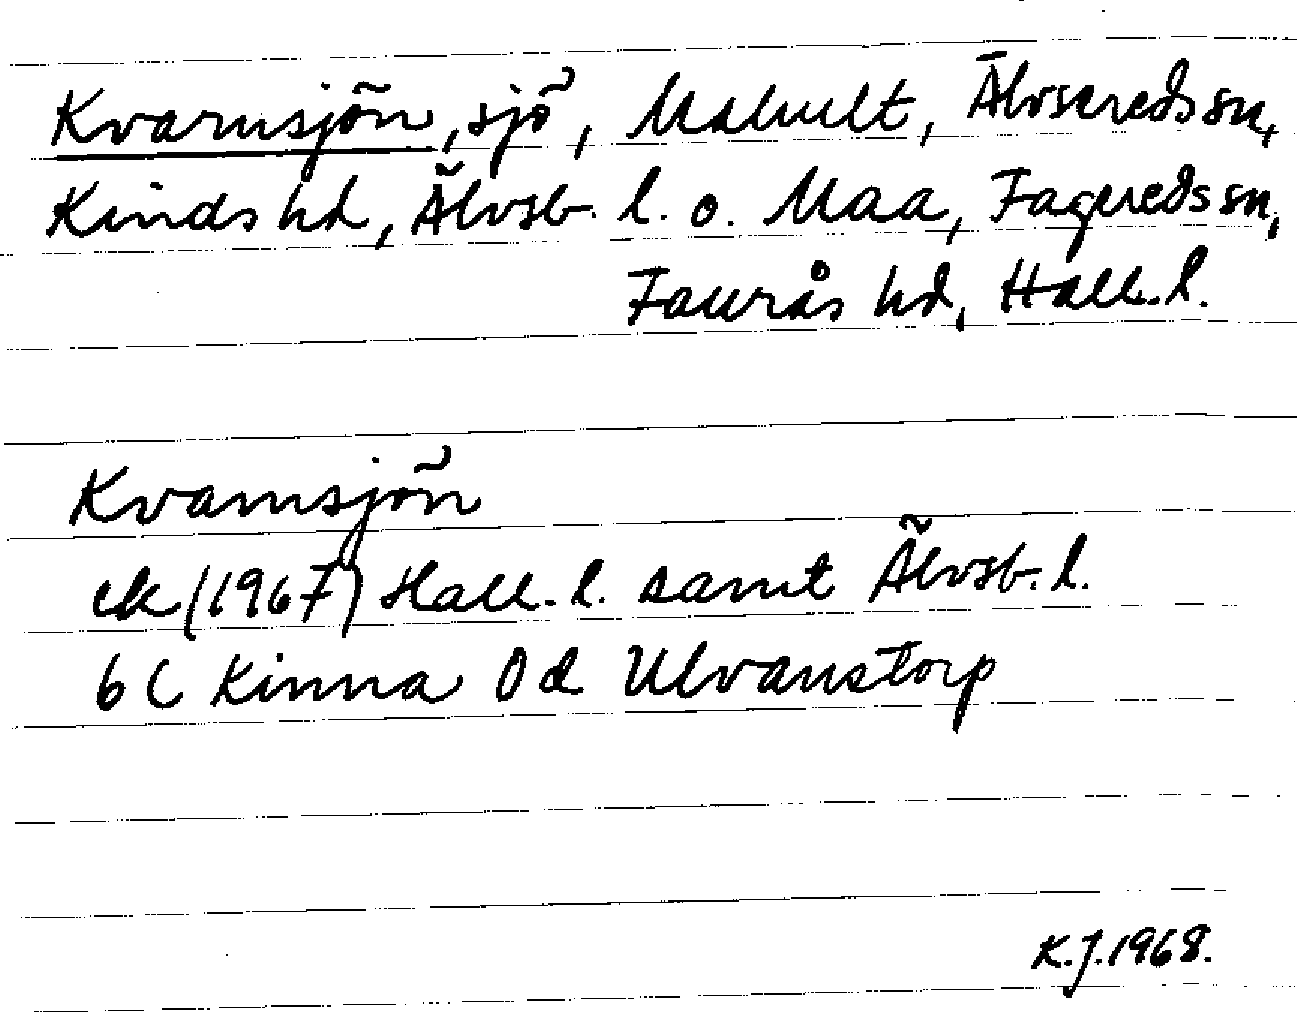 Kvarnsjön, sjö, Malhult, Älvsereds sn,
Kinds hd, Älvsb. l. o. Maa, Fagereds sn,
Faurås hd, Hall. l.
Kvarnsjön
ek (1967) Hall. l. samt Älvsb. l.
6 C Kinna 0 d Ulvanstorp
K.J. 1968.